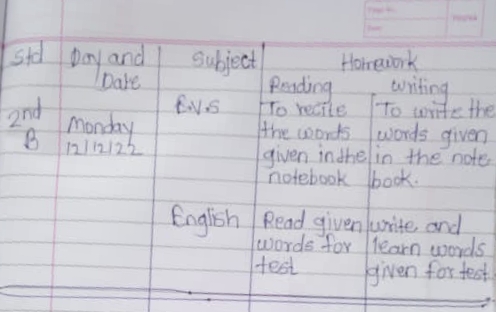 Std Day and Subject Homework
Date Reading writing
2nd E.V.S To recite To write the
B Monday the words words given
12/12/22 given in the in the note
notebook book.
English Read given write and
words for learn words
test given for test